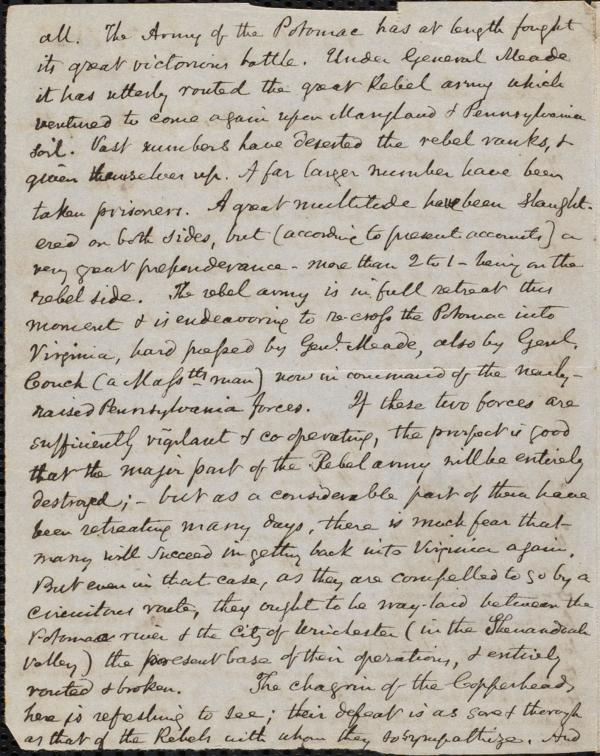 all. The Army of the Potomac has at length fought
its great victorious battle. Under General Meade
it has utterly routed the great Rebel army which
ventured to come again upon Maryland & Pennsylvania
soil. Vast numbers have deserted the rebel ranks, &
given themselves up. A far larger number have been
taken prisoners. A great multitude have been slaught-
ered on both sides, but (according to present accounts) a
very great preponderance - more than 2 to 1 - being on the
rebel side. The rebel army is in full retreat this
moment & is endeavoring to re-cross the Potomac into
Virginia, hard pressed by Genl. Meade, also by Genl.
Couch (a Masstts man) now in command of the newly-
raised Pennsylvania forces. If these two forces are
sufficiently vigilant & co operating, the prospect is good
that the major part of the Rebel army will be entirely
destroyed; - but as a considerable part of them have
been retreating many days, there is much fear that
many will succeed in getting back into Virginia again.
But even in that case, as they are compelled to go by a
circuitous route, they ought to be way-laid between the
Potomac river & the City of Winchester (in the Shenandoah
Valley) the present base of their operations, & entirely
routed & broken. The chagrin of the Copperheads
here is refreshing to see; their defeat is as sore & thorough
as that of the Rebels with whom they so sympathize. And